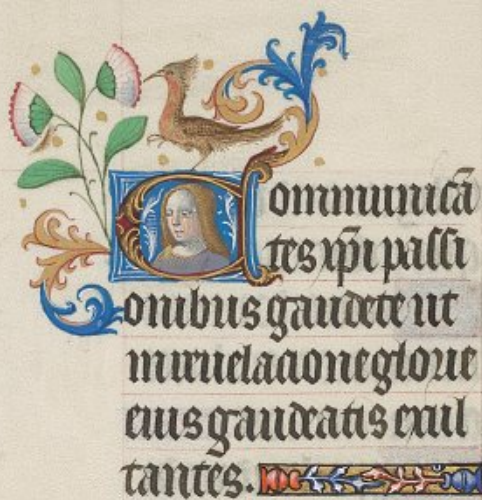 Communicā
tes xp̄i passi
onibus gaudete ut
in revelacione glorie
eius gaudeatis exul
tantes.